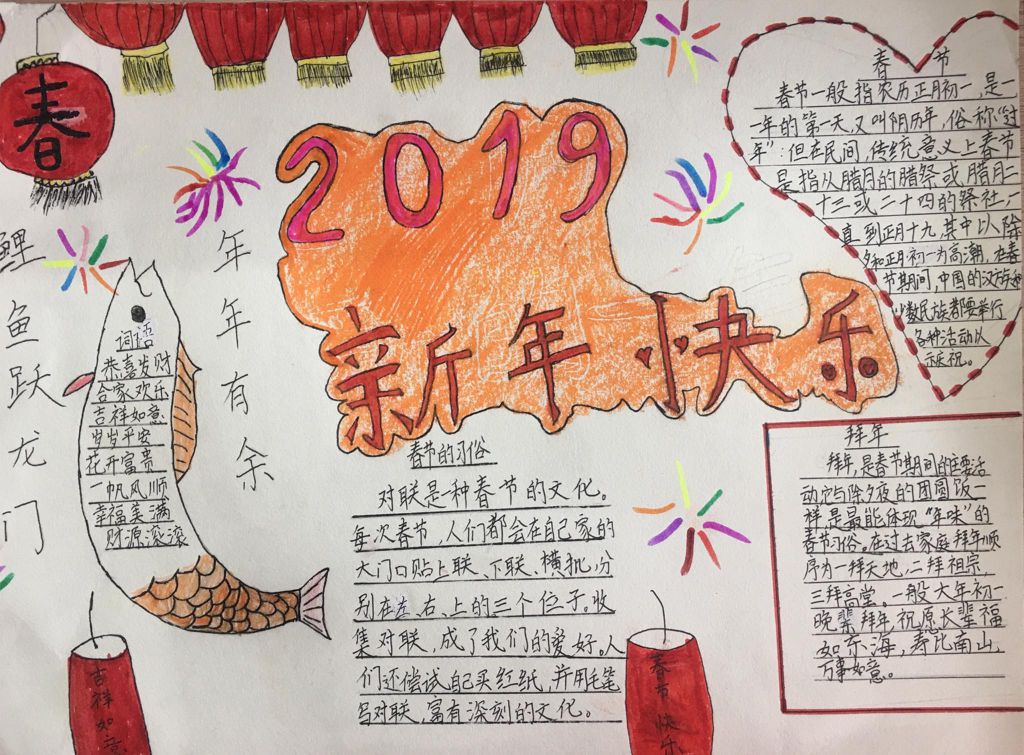 春
2019
新年快乐
鲤鱼跃龙门
年年有余
词语
恭喜发财
合家欢乐
吉祥如意
岁岁平安
花开富贵
一帆风顺
幸福美满
财源滚滚
吉祥如意
春节的习俗
对联是一种春节的文化。
每次春节，人们都会在自己家的
大门口贴上联、下联、横批，分
别在左、右、上的三个位子。收
集对联，成了我们的爱好。人
们还尝试自己买红纸，并用毛笔
写对联，富有深刻的文化。
春节快乐
春节
春节一般指农历正月初一，是
一年的第一天，又叫阴历年，俗称“过
年”：但在民间，传统意义上春节
是指从腊月的腊祭或腊月二
十三或二十四的祭社，一
直到正月十九，其中以除
夕和正月初一为高潮，在春
节期间，中国的汉族和
少数民族都要举行
各种活动以
示庆祝。
拜年
拜年，是春节期间的主要活
动它与除夕夜的团圆饭一
样，是最能体现“年味”的
春节习俗。在过去家庭拜年顺
序为一拜天地，二拜祖宗
三拜高堂。一般大年初一
晚辈拜年，祝愿长辈福
如东海，寿比南山，
万事如意。